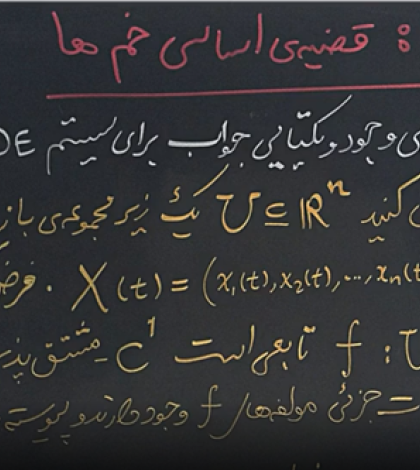 : قضیه‌ی اساسی خم ها
وجود و یکتایی جواب برای سیستم DE
کنید U ⊆ ℝⁿ یک زیر مجموعه‌ی باز
X(t) = (x₁(t), x₂(t), ..., xₙ(t . فرض
: f تابعی است C¹ - مشتق پذیر
جزئی مولفه‌های f وجود دارند و پیوسته